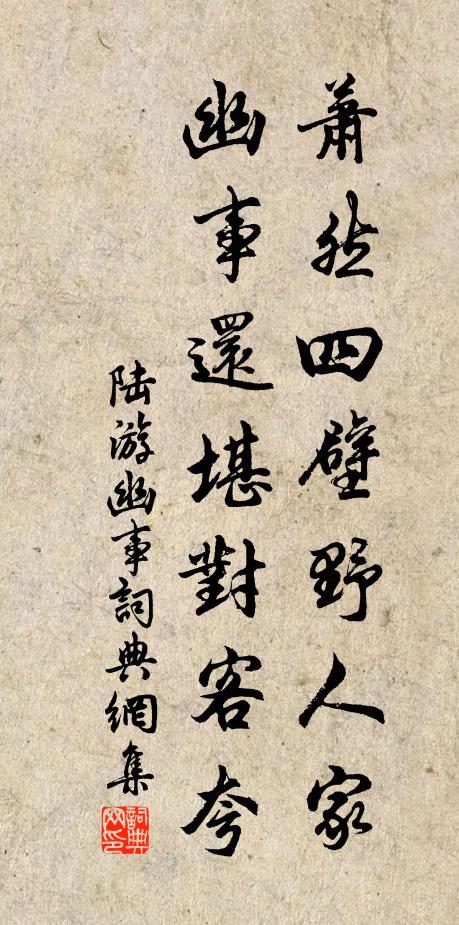 蕭然四壁野人家
幽事還堪對客夸
陆游幽事詞典網集
詞典网印